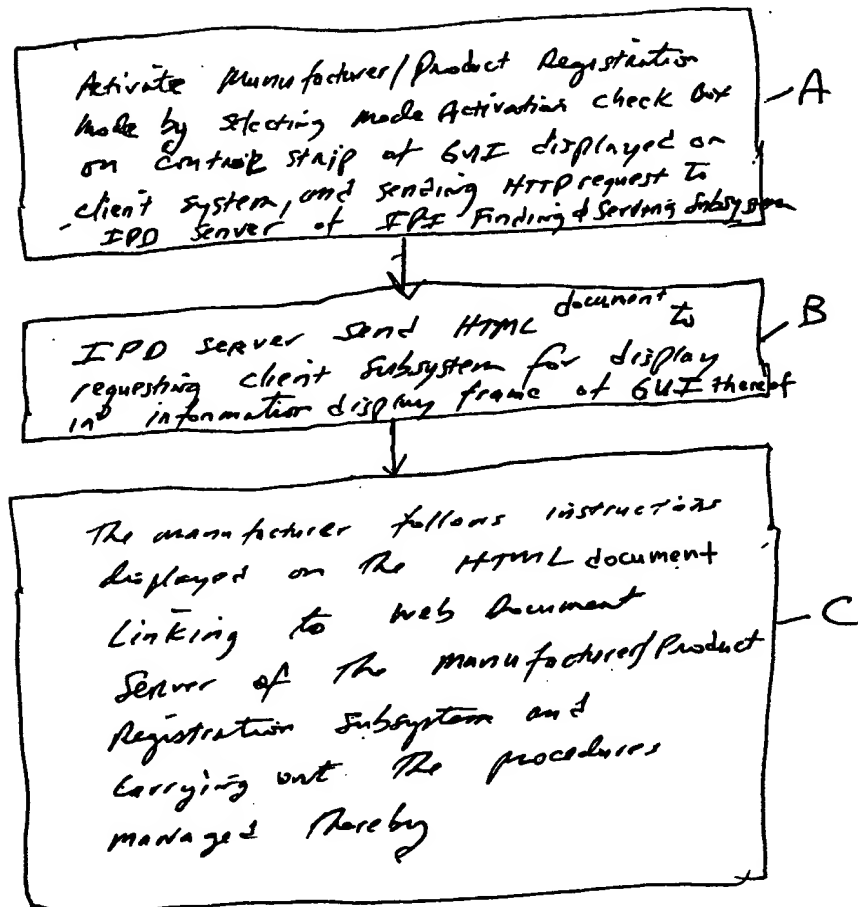 Activate Manufacturer/Product Registration
Mode by selecting mode Activation check Box
on control strip of GUI displayed on
client system, and sending HTTP request to
IPD server of IPI Finding & Serving Subsystem
A
IPD server send HTML document to
requesting client Subsystem for display
in information display frame of GUI thereof
B
The manufacturer follows instructions
displayed on the HTML document
Linking to web Document
Server of the manufacturer/Product
Registration Subsystem and
Carrying out the procedures
managed thereby
C